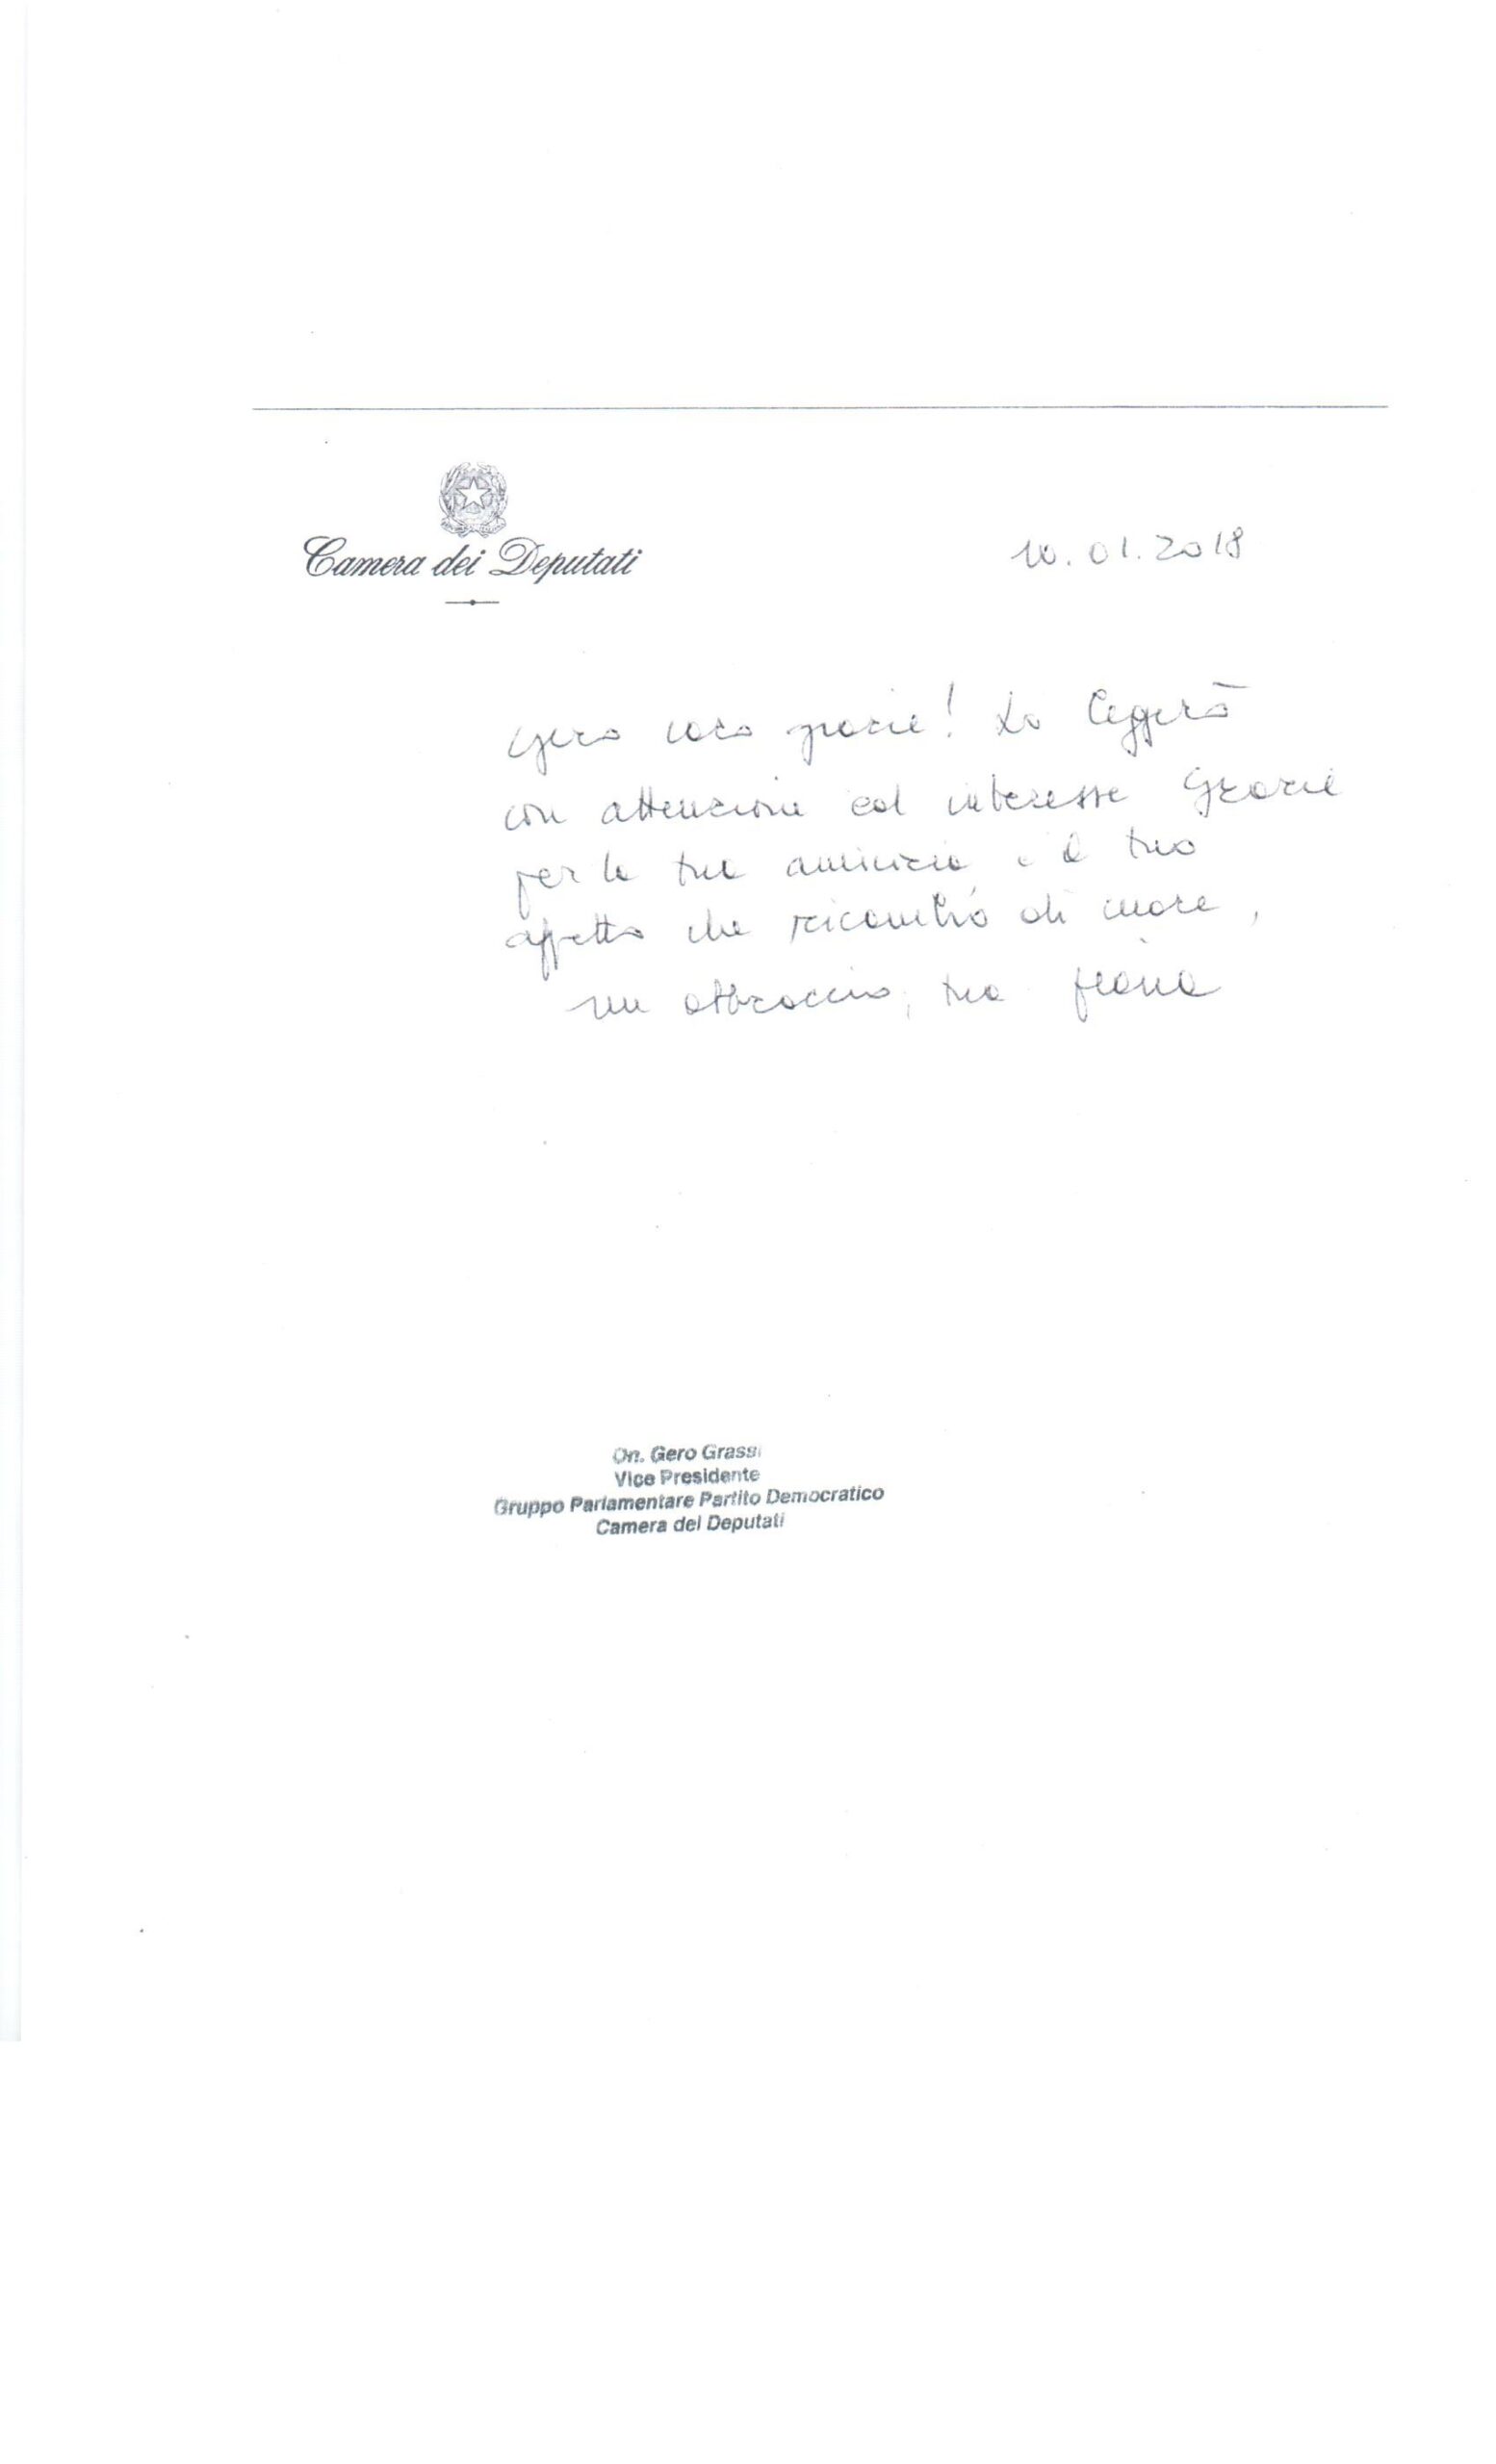 Camera dei Deputati
10.01.2018
Gero caro grazie! Lo leggerò
con attenzione ed interesse Grazie
per la tua amicizia e il tuo
affetto che ricambio di cuore,
un abbraccio, tua
On. Gero Grassi
Vice Presidente
Gruppo Parlamentare Partito Democratico
Camera dei Deputati